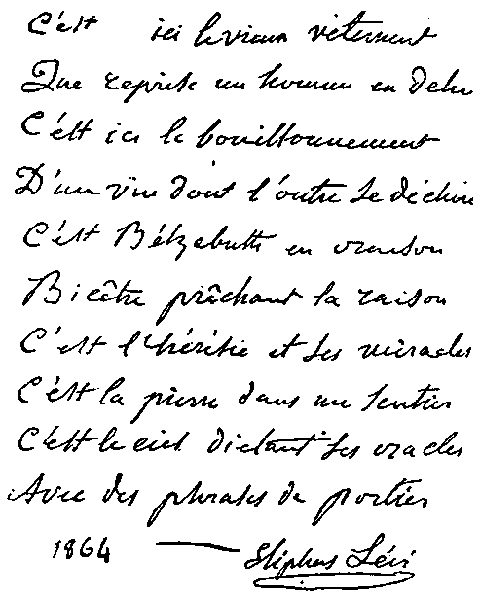 C'est ici le vieux vêtement
Que reprise un homme en delire
C'est ici le bouillonnement
D'un vin dont l'outre se déchire
C'est Bélzebuth en oraison
Bicêtre prêchant la raison
C'est l'hérésie et ses miracles
C'est la pierre dans un sentier
C'est le ciel dictant ses oracles
Avec des phrases de portier
1864 — Eliphas Lévi